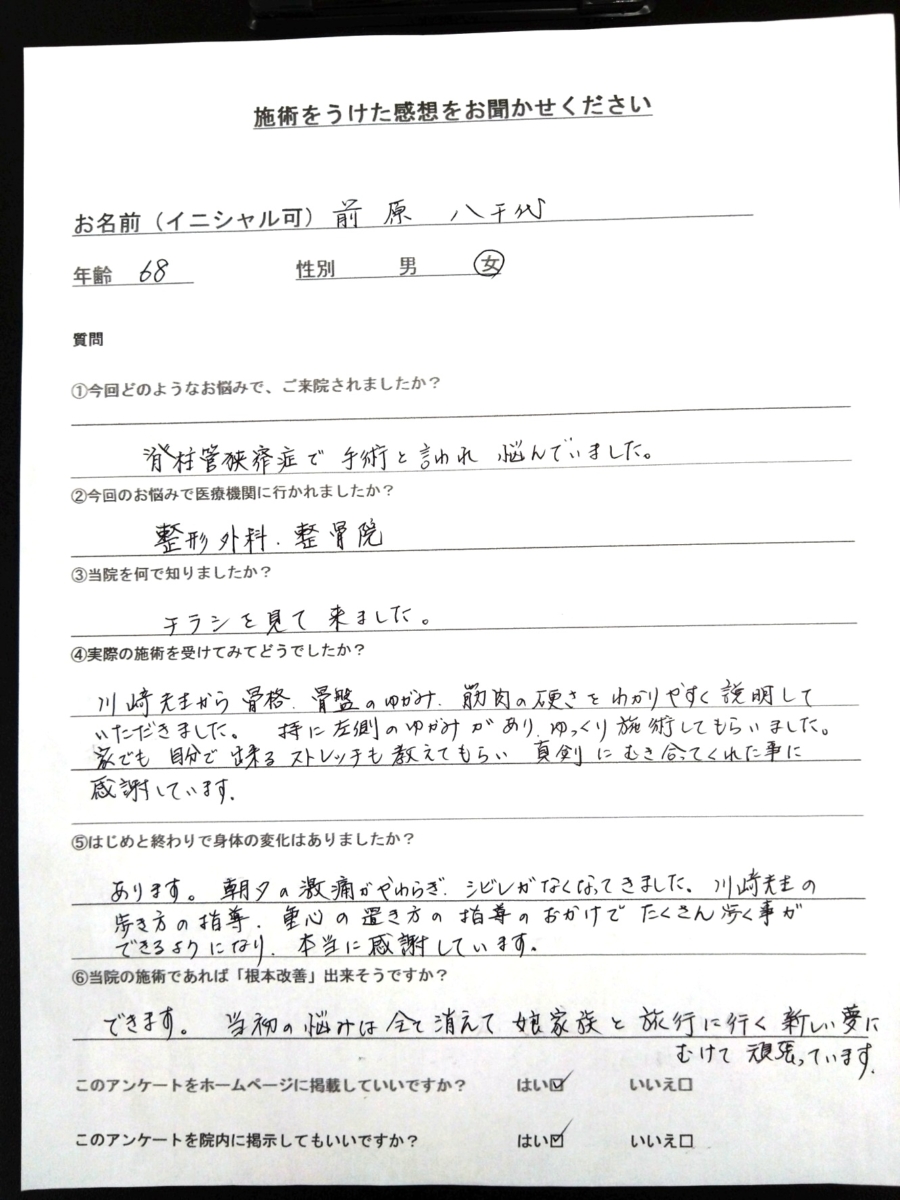 施術をうけた感想をお聞かせください
お名前（イニシャル可）前原 八千代
年齢 68 性別 男 女
質問
①今回どのようなお悩みで、ご来院されましたか？
脊柱管狭窄症で手術と言われ 悩んでいました。
②今回のお悩みで医療機関に行かれましたか？
整形外科、整骨院
③当院を何で知りましたか？
チラシを見て来ました。
④実際の施術を受けてみてどうでしたか？
川崎先生から骨格、骨盤のゆがみ、筋肉の硬さをわかりやすく説明して
いただきました。 特に左側のゆがみがあり、ゆっくり施術してもらいました。
家でも自分で出来るストレッチも教えてもらい 真剣にむき合ってくれた事に
感謝しています。
⑤はじめと終わりで身体の変化はありましたか？
あります。朝夕の激痛がやわらぎ、シビレがなくなってきました。川崎先生の
歩き方の指導、重心の置き方の指導のおかげでたくさん歩く事が
できるようになり、本当に感謝しています。
⑥当院の施術であれば「根本改善」出来そうですか？
できます。 当初の悩みは全て消えて 娘家族と旅行に行く新しい夢に
むけて頑張っています。
このアンケートをホームページに掲載していいですか？ はい☑ いいえ□
このアンケートを院内に掲示してもいいですか？ はい☑ いいえ□